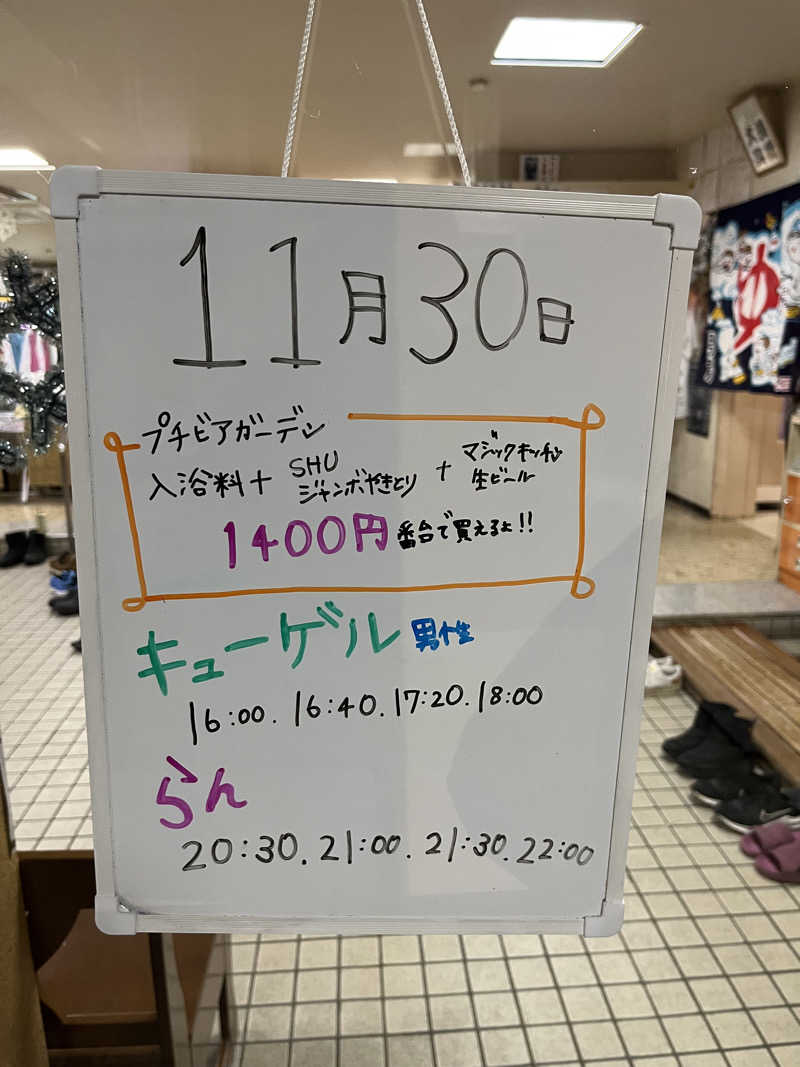 11月30日
プチビアガーデン
入浴料 + SHU ジャンボやきとり + マジックキッチン 生ビール
1400円 番台で買えるよ!!
キューゲル 男性
16:00. 16:40. 17:20. 18:00
らん
20:30. 21:00. 21:30. 22:00